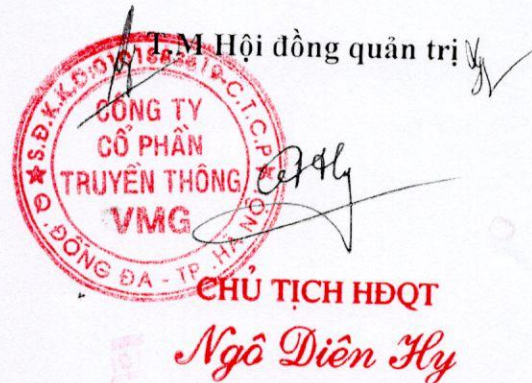 T.M Hội đồng quản trị
CÔNG TY
CỔ PHẦN
TRUYỀN THÔNG
VMG
Q. ĐỐNG ĐA - TP. HÀ NỘI
CHỦ TỊCH HĐQT
Ngô Diên Hy